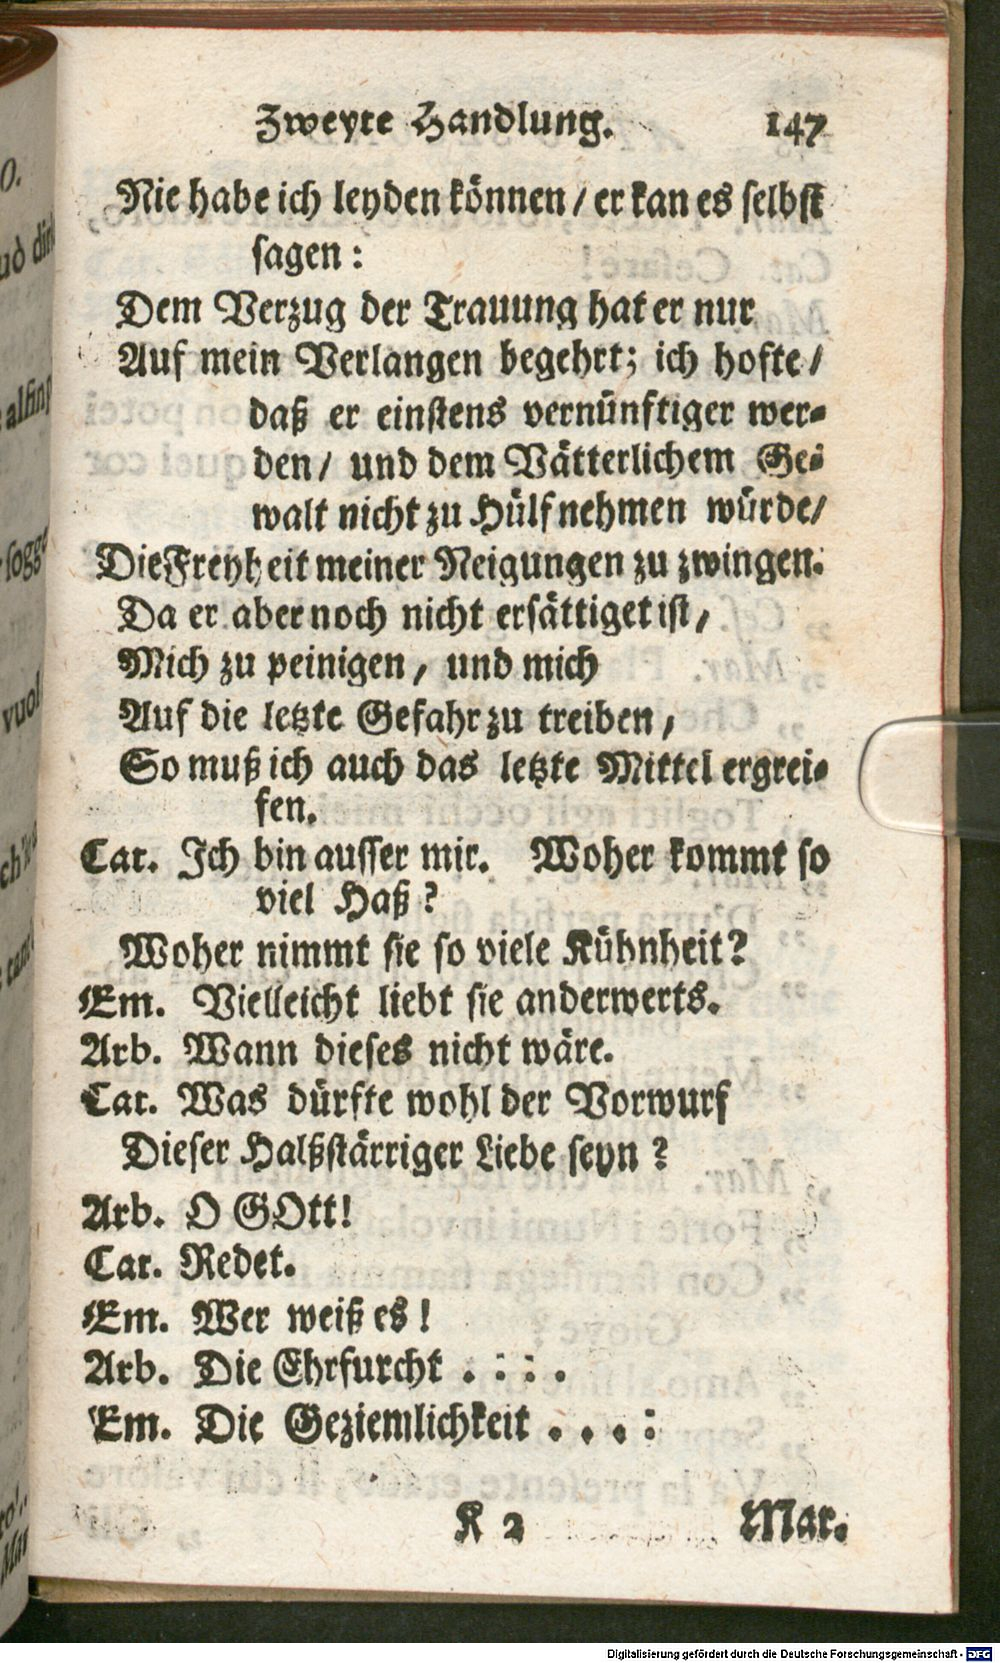 Zweyte Handlung. 147
Nie habe ich leyden können / er kan es selbst
sagen :
Dem Verzug der Trauung hat er nur
Auf mein Verlangen begehrt; ich hofte /
daß er einstens vernünftiger wer-
den / und dem Vätterlichem Ge-
walt nicht zu Hülf nehmen würde /
Die Freyheit meiner Neigungen zu zwingen.
Da er aber noch nicht ersättiget ist,
Mich zu peinigen, und mich
Auf die letzte Gefahr zu treiben,
So muß ich auch das letzte Mittel ergrei-
fen.
Cat. Ich bin ausser mir. Woher kommt so
viel Haß ?
Woher nimmt sie so viele Kühnheit?
Em. Vielleicht liebt sie anderwerts.
Arb. Wann dieses nicht wäre.
Cat. Was dürfte wohl der Vorwurf
Dieser Halßstärriger Liebe seyn ?
Arb. O GOtt!
Cat. Redet.
Em. Wer weiß es !
Arb. Die Ehrfurcht . : : .
Em. Die Geziemlichkeit . . . :
K 2 Mar.
o.
ud
alfin
sogge
vuol
ch'
tant
ro'..
Mar
Digitalisierung gefördert durch die Deutsche Forschungsgemeinschaft - DFG